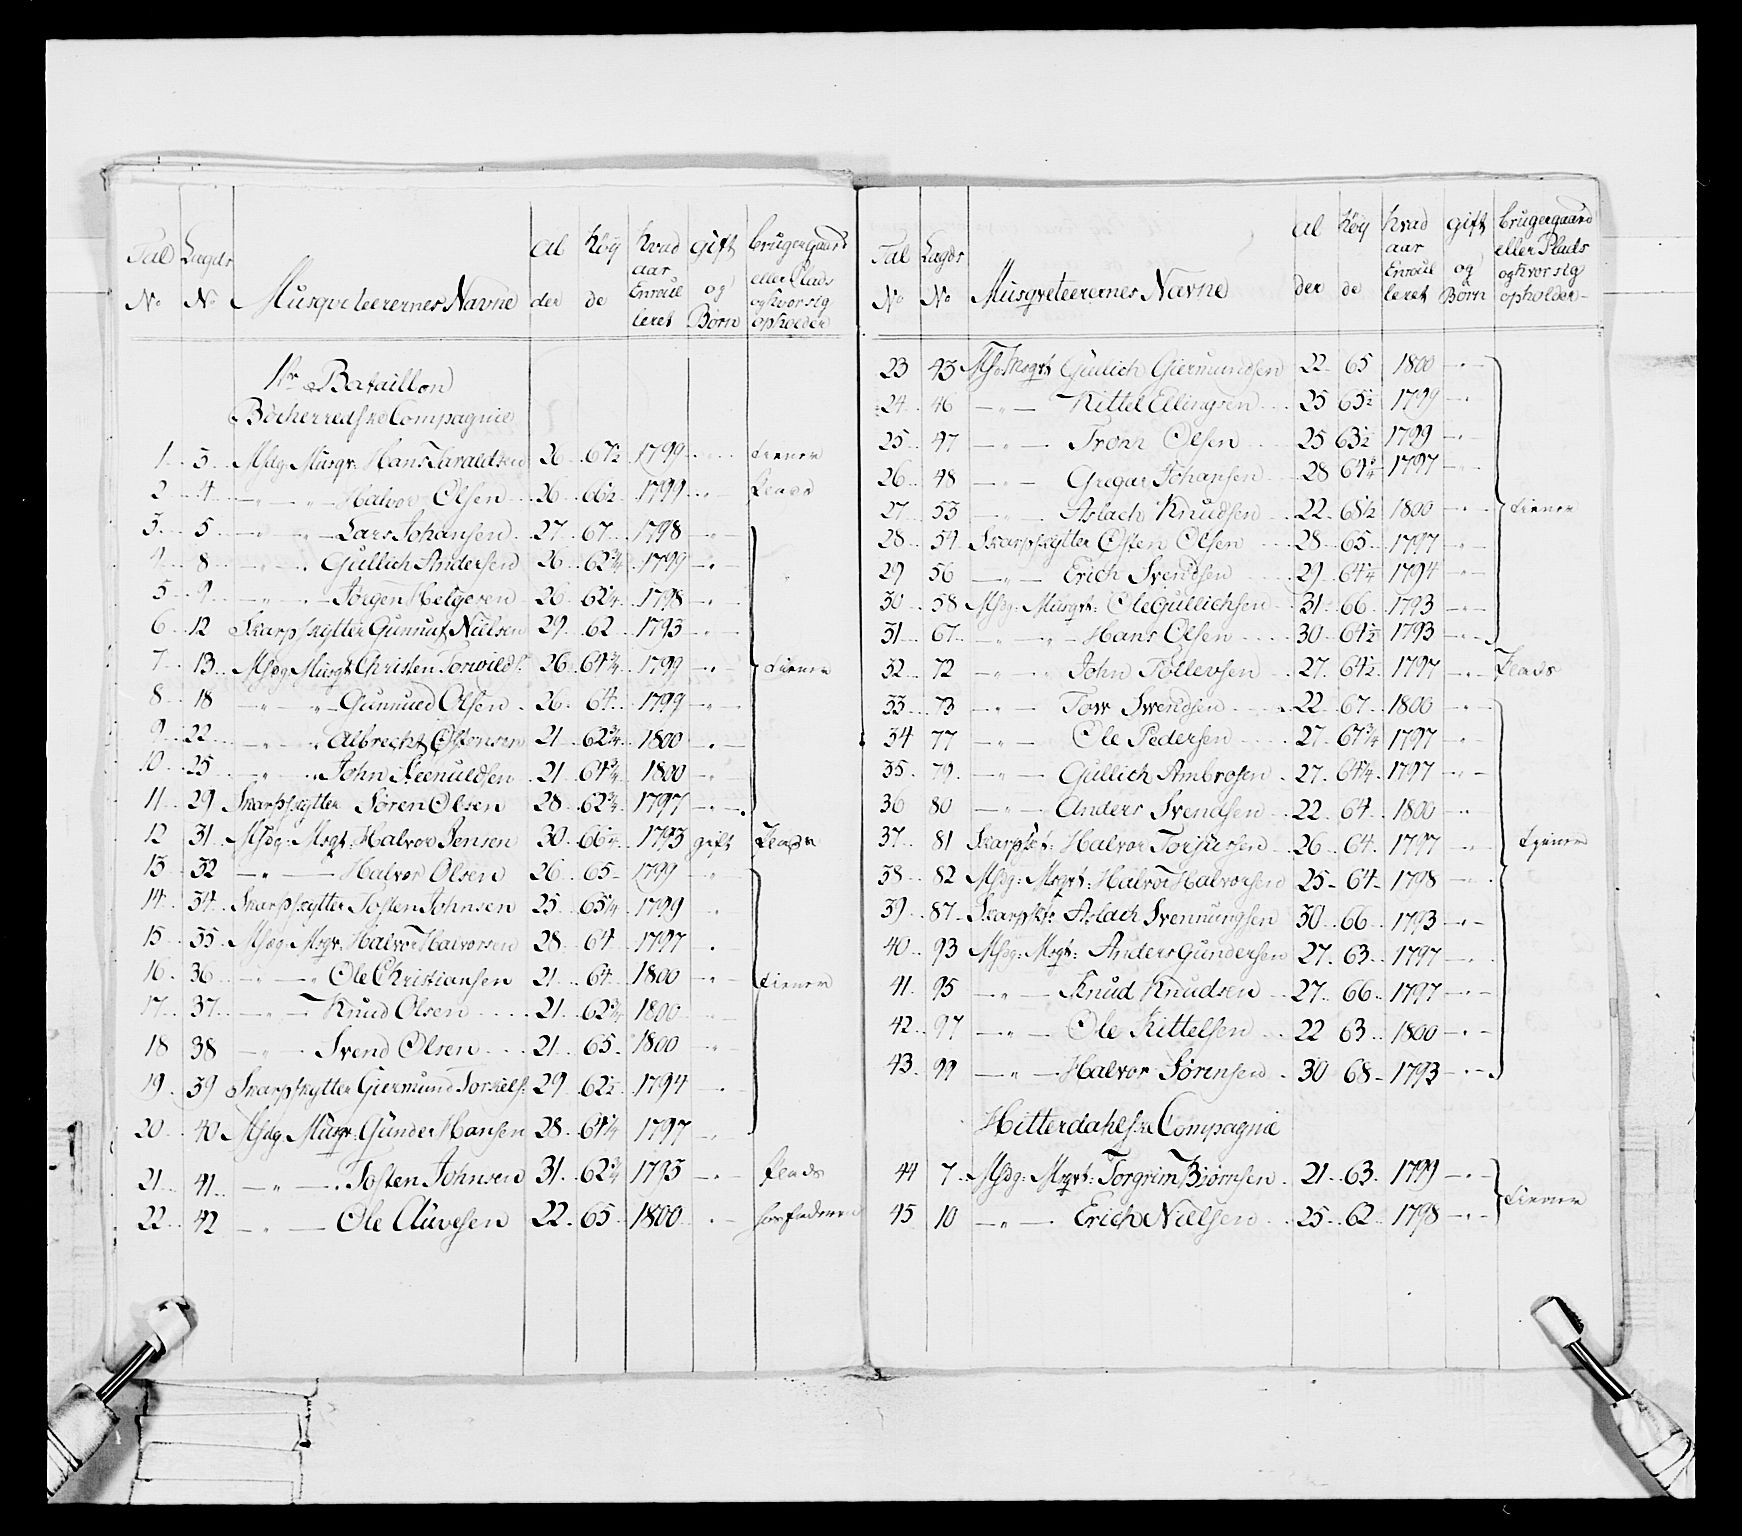 Tal No Lagds No Musqveteerernes Navne Al der Høy de hvad aar Enroul leret gift og Børn bruger gaard eller Plads og hvor sig opholder
1ste Bataillon
Bøherredske Compagnie
1 3 Msdg Musqr: Hans Taraldsen 26 67½ 1799 tiener
2 4 — " — " Halvor Olsen 26 66½ 1799 Plads
3 5 — " — " — Lars Johansen 27 67 1798 — " —
4 8 — " — " Gullich Andersen 26 62¾ 1799 — " —
5 9 — " — " — Jørgen Helgesen 26 62¼ 1798 — " —
6 12 Skarpskytter Gunnuf Nielsen 29 62 1793 — " —
7 13 Msdg Musqt Christen Torvilds: 26 64¾ 1799 — " — tiener
8 18 — " — " — Gunnued Olsen 26 64 1799 — " —
9 22 — " — " Albrecht Ostensen 21 62¾ 1800 — " —
10 25 — " — " John Steenuldsen 21 64¾ 1800 — " —
11 29 Skarpskytter Søren Olsen 28 62¾ 1797 — " —
12 31 Msdg: Msqt: Halvor Jensen 30 66¼ 1793 gift Plads
13 32 — " — Halvor Olsen 26 65 1799 — " —
14 34 Skarpskytter Tosten Johnsen 25 65¼ 1799 "
15 35 Msdg: Msqr: Halvor Halvorsen 28 64 1797 "
16 36 — " — " Ole Christiansen 21 64 1800 — " — tiener
17 37 — " — Knud Olsen 21 62¾ 1800 — " —
18 38 — " — Svend Olsen 21 65 1800 — " —
19 39 Skarpskytter Giermund Torkels: 29 62½ 1794 "
20 40 Msdg Musqr: Gunder Hansen 28 64¼ 1797 — " —
21 41 — " — Tosten Johnsen 31 62¾ 1793 — " — Plads
22 42 — " — Ole Aluvesen 22 65 1800 " —
Tal No Lagds No Musqveteerernes Navne Al der Høy de hvad aar Enroul leret gift og Børn bruger gaard eller Plads og hvor sig opholder
23 43 Msd: Msqrt Gullich Giermundsen 22 65 1800 — " —
24 46 — " — Kittel Ellingsen 25 65½ 1799 — " —
25 47 — " — Trohn Olsen 25 63½ 1799 — " —
26 48 — " — Gregar Johansen 28 64¾ 1797 — " —
27 53 — " — Aslach Knudsen 22 68½ 1800 — " — tiener
28 54 Skarpskytter Osten Olsen 28 65 1797 — " —
29 56 — " — Erich Svendsen 29 64¼ 1794 — " —
30 58 Msdg: Musqt: Ole Gullichsen 31 66 1793 — " —
31 67 — " — " — Hans Olsen 30 64½ 1793 — " —
32 72 — " — " John Tollevsen 27 64½ 1797 — " — Plads
33 73 — " — Tow Svendsen 22 67 1800 — " —
34 77 — " — Ole Pedersen 27 67¾ 1797 — " —
35 79 — " — Gullich Ambrosen 27 64¼ 1797 — " —
36 80 — " — Anders Svendsen 22 64 1800 — " —
37 81 Skarpsk: Halvor Torjussen 26 64 1797 — " — tjener
38 82 Msdg: Msqt: Halvor Halvorsen 25 64 1798 — " —
39 87 Skarpsk: Aslach Svennungsen 30 66 1793 — " —
40 93 Msdg: Msqt: Anders Gundersen 27 63 1797 — " —
41 95 — " — Knud Knudsen 27 66 1797 — " —
42 97 — " — Ole Kittelsen 22 63 1800 — " —
43 99 — " — Halvor Sørensen 30 68 1793 — " —
Hitterdahlske Compagnie
44 7 Msdg: Msqt: Torgrim Biørnsen 21 63 1799 — " —
45 10 — " — Erich Nielsen 25 62 1798 — " — tiener